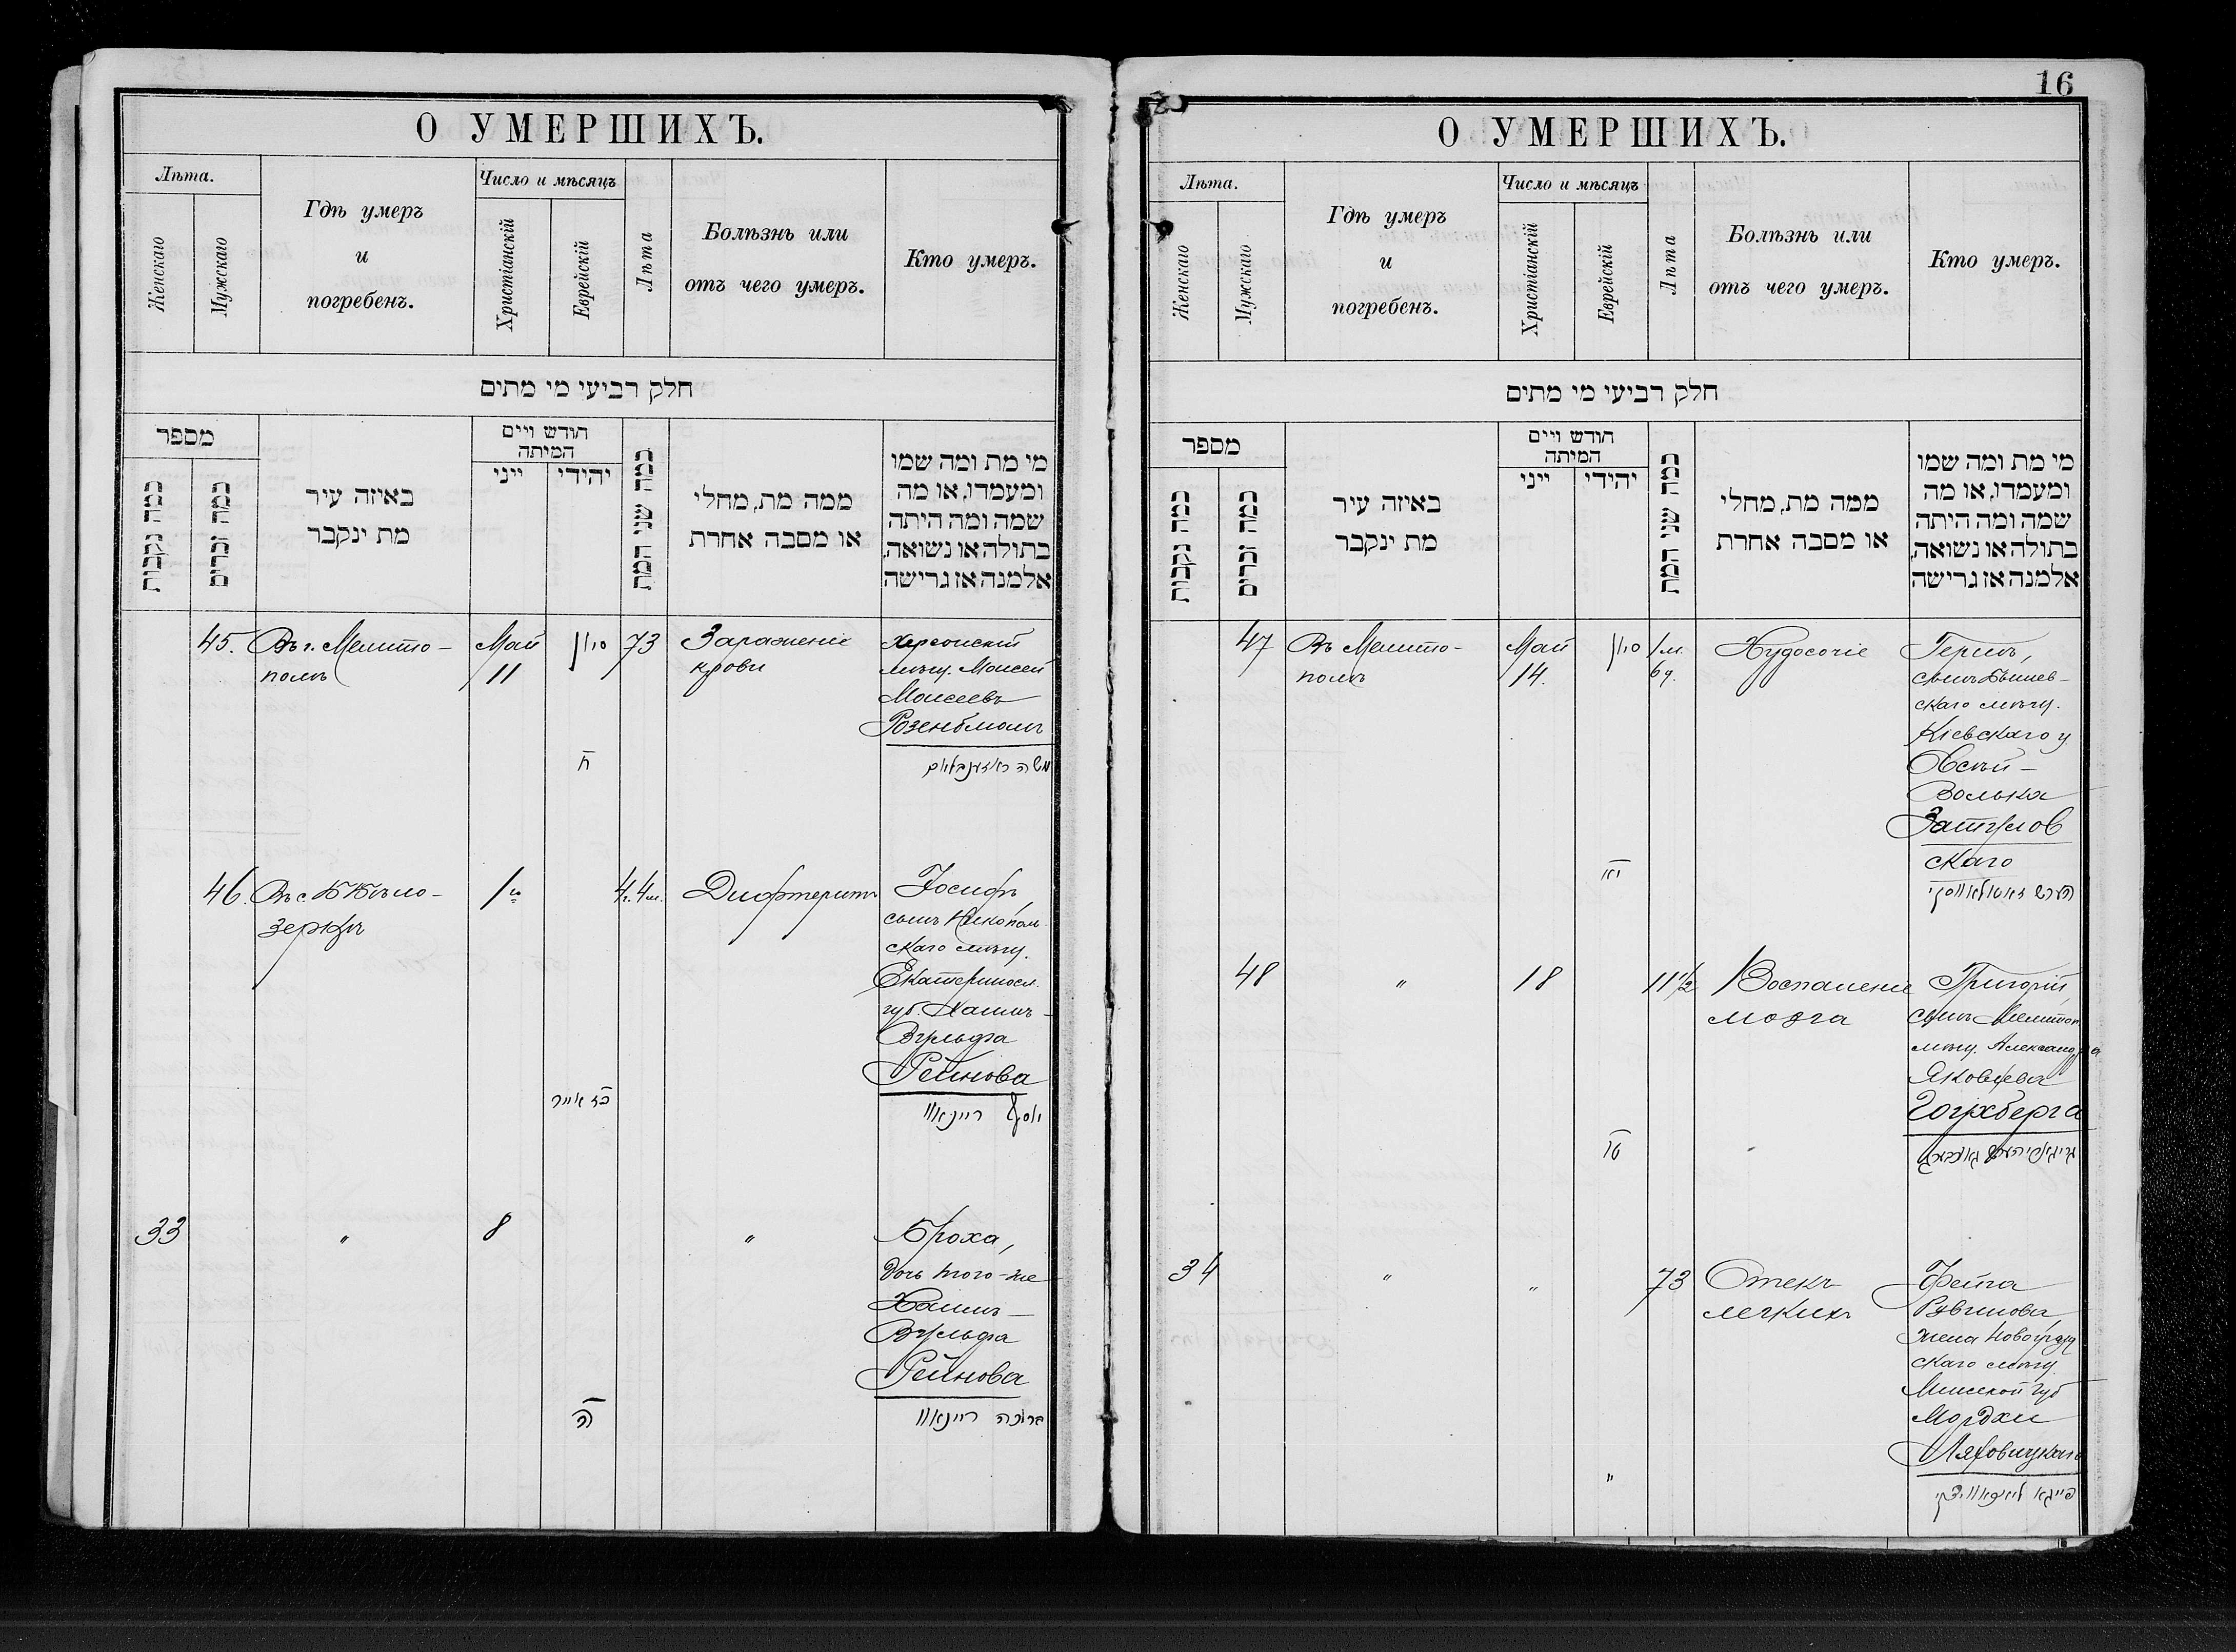 О УМЕРШИХЪ.
Лѣта.
Женскаго
Мужскаго
Гдѣ умеръ
и
погребенъ.
Число и мѣсяцъ
Христіанскій
Еврейскій
Лѣта
Болѣзнь или
отъ чего умеръ.
Кто умеръ.
חלק רביעי מי מתים
מספר
כמה נקבות
כמה זכרים
באיזה עיר
מת ינקבר
חודש ויים
המיתה
ייני
יהידי
כמה שני המת
ממה מת, מחלי
או מסבה אחרת
מי מת ומה שמו
ומעמדו, או מה
שמה ומה היתה
בתולה או נשואה,
אלמנה אז גרישה
45.
Въ г. Мелито-
полѣ
Май
11
סיון
ח
73
Зараженіе
крови
Херсонскій
мѣщ. Моисей
Моисеевъ
Розенблюмъ
משה ראזענבלום
46.
зеркѣ
כז אייר
4г. 4м.
Дифтеритъ
Іосифъ,
сынъ Никополь
скаго мѣщ.
Екатериносл.
губ. Хаимъ-
Вульфа
Рейнова
יוסף ריינאוו
33
"
8
ה
"
Броха,
дочь того-же
Хаимъ-
Вульфа
Рейнова
ברוכה ריינאוו
16
О УМЕРШИХЪ.
Лѣта.
Женскаго
Мужскаго
Гдѣ умеръ
и
погребенъ.
Число и мѣсяцъ
Христіанскій
Еврейскій
Лѣта
Болѣзнь или
отъ чего умеръ.
Кто умеръ.
חלק רביעי מי מתים
מספר
כמה נקבות
כמה זכרים
באיזה עיר
מת ינקבר
חודש ויים
המיתה
ייני
יהידי
כמה שני המת
ממה מת, מחלי
או מסבה אחרת
מי מת ומה שמו
ומעמדו, או מה
שמה ומה היתה
בתולה או נשואה,
אלמנה אז גרישה
47
Въ Мелито-
полѣ
Май
14.
סיון
יא
1м.
6д.
Худосочіе
Гершъ,
сынъ
скаго мѣщ.
Кіевскаго у.
Овсѣй-
Волька
Затулов
скаго
הערש
48
"
18
טו
11 1/2
Воспаленіе
мозга
Григорій,
сынъ Мелитоп.
мѣщ. Александра
Яковлева
34
"
"
"
73
Отекъ
легкихъ
Фейга
Рувинова,
жена Новогруд
скаго мѣщ
Минской губ
Мордхи
Ляховицкаго
פייגא